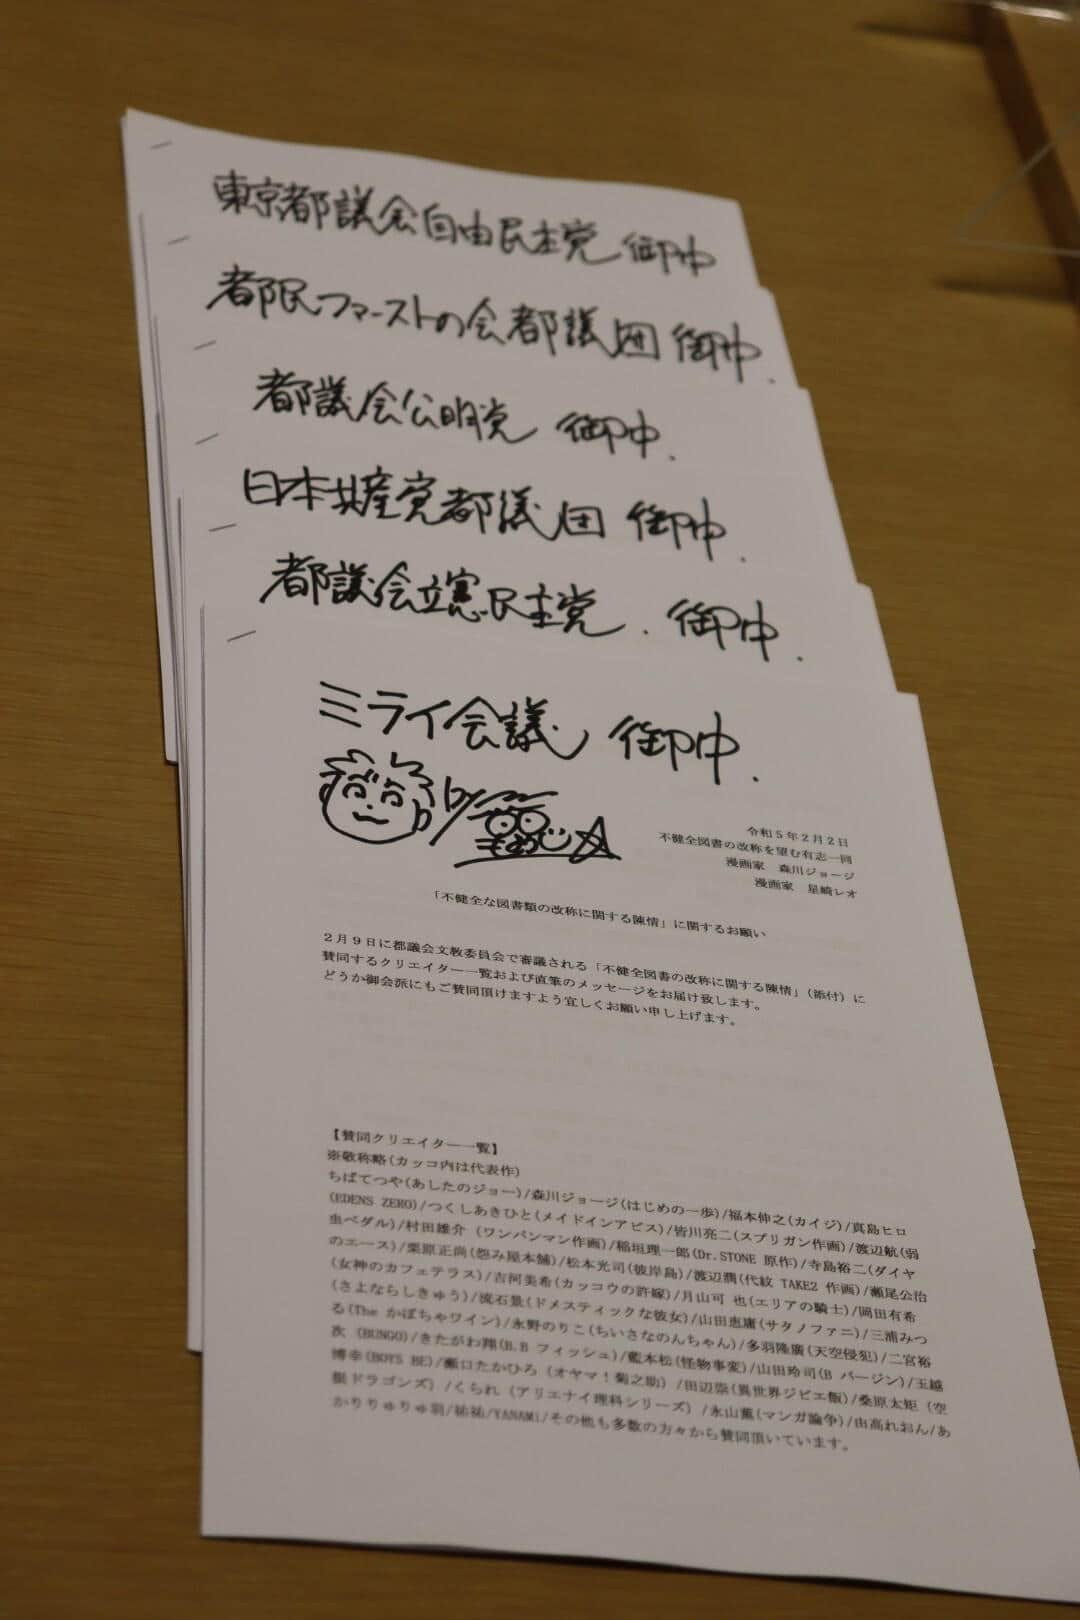 東京都議会自由民主党 御中
都民ファーストの会都議団 御中.
都議会公明党 御中.
日本共産党都議団 御中.
都議会立憲民主党. 御中.
ミライ会議 御中.
by
令和5年2月2日
不健全図書の改称を望む有志一同
漫画家 森川ジョージ
漫画家 星崎レオ
「不健全な図書類の改称に関する陳情」に関するお願い
2月9日に都議会文教委員会で審議される「不健全図書の改称に関する陳情」(添付)に
賛同するクリエイター一覧および直筆のメッセージをお届け致します。
どうか御会派にもご賛同頂けますよう宜しくお願い申し上げます。
【賛同クリエイター一覧】
※敬称略(カッコ内は代表作)
ちばてつや(あしたのジョー)/森川ジョージ(はじめの一歩)/福本伸之(カイジ)/真島ヒロ
(EDENS ZERO)/つくしあきひと(メイドインアビス)/皆川亮二(スプリガン作画)/渡辺航(弱
虫ペダル)/村田雄介 (ワンパンマン作画)/稲垣理一郎(Dr.STONE 原作)/寺島裕二(ダイヤ
のエース)/栗原正尚(怨み屋本舗)/松本光司(彼岸島)/渡辺潤(代紋 TAKE2 作画)/瀬尾公治
(女神のカフェテラス)/吉河美希(カッコウの許嫁)/月山可也(エリアの騎士)/岡田有希
(さよならしきゅう)/流石景(ドメスティックな彼女)/山田恵庸(サタノファニ)/三浦みつ
る(The かぼちゃワイン)/永野のりこ(ちいさなのんちゃん)/多羽隆廣(天空侵犯)/二宮裕
次 (BUNGO)/きたがわ翔(B.B フィッシュ)/藍本松(怪物事変)/山田玲司(B バージン)/玉越
博幸(BOYS BE)/瀬口たかひろ (オヤマ!菊之助) /田辺崇(異世界ジビエ飯)/桑原太矩 (空
挺ドラゴンズ) /くられ (アリエナイ理科シリーズ) /永山薫(マンガ論争)/由高れおん/あ
かりりゅりゅ羽/祐祐/YANAMi/その他も多数の方々から賛同頂いています。